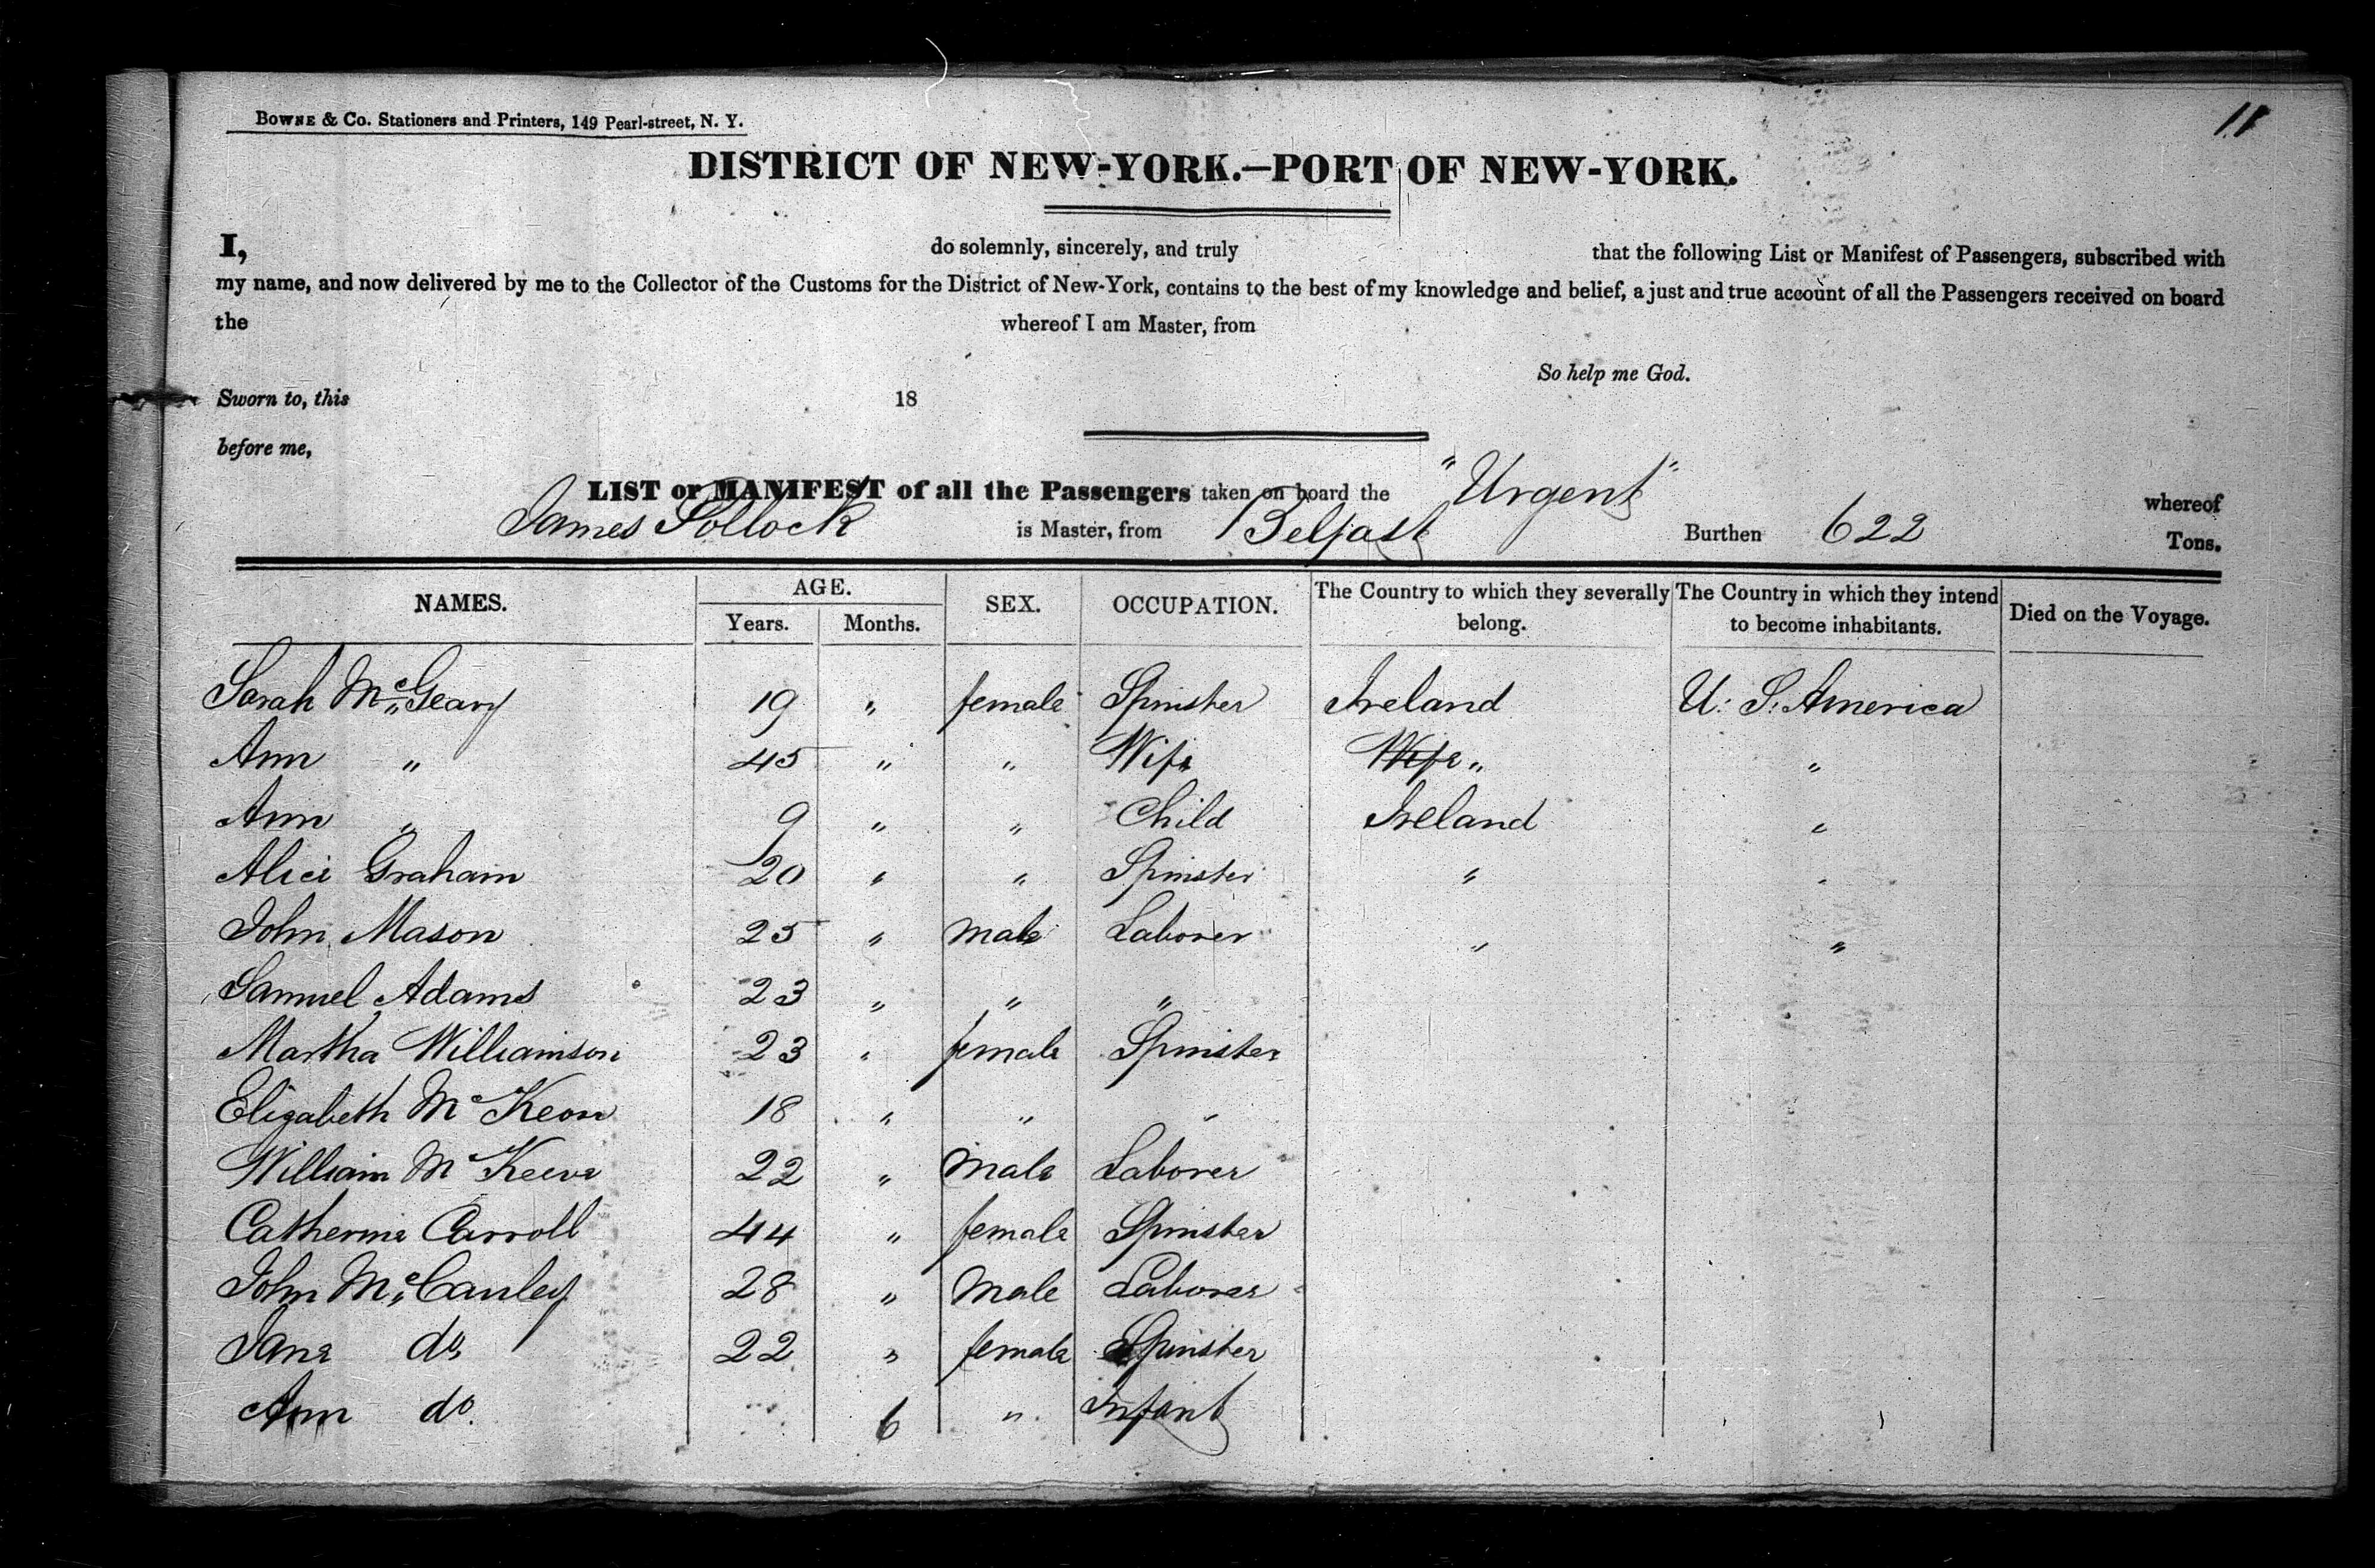 11
BOWNE & CO. Stationers and Printers, 149 Pearl-street, N. Y.
DISTRICT OF NEW-YORK.—PORT OF NEW-YORK.
I, do solemnly, sincerely, and truly that the following List or Manifest of Passengers, subscribed with
my name, and now delivered by me to the Collector of the Customs for the District of New-York, contains to the best of my knowledge and belief, a just and true account of all the Passengers received on board
the whereof I am Master, from
So help me God.
Sworn to, this 18
before me,
LIST or MANIFEST of all the Passengers taken on board the "Urgent" whereof
James Pollock is Master, from Belfast Burthen 622 Tons.
NAMES. AGE. SEX. OCCUPATION. The Country to which they severally belong. The Country in which they intend to become inhabitants. Died on the Voyage.
Years. Months.
Sarah McGeary 19 " female Spinster Ireland U. S. America
Ann " 45 " " Wife Wife " "
Ann " 9 " " Child Ireland "
Alice Graham 20 " " Spinster " "
John Mason 25 " male Laborer " "
Samuel Adams 23 " " "
Martha Williamson 23 " female Spinster
Elizabeth McKeon 18 " " "
William McKeeve 22 " Male Laborer
Catherine Carroll 44 " female Spinster
John McCauley 28 " Male Laborer
Jane do 22 " female Spinster
Ann do. 6 " Infant